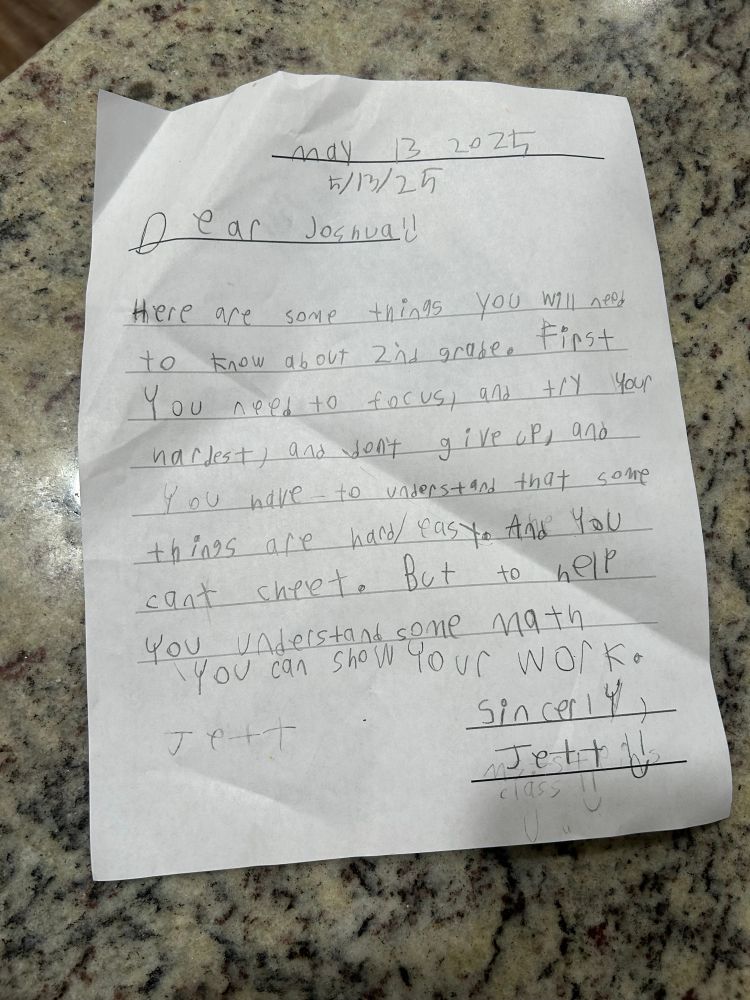 may 13 2025
5/13/25
Dear Joshua!!
Here are some things you will need
to know about 2nd grade. First
You need to focus, and try your
hardest, and don't give up, and
you have to understand that some
things are hard/easy. And you
cant cheet. But to help
you understand some math
you can show your work.
Sincerly,
Jett
Jett
class